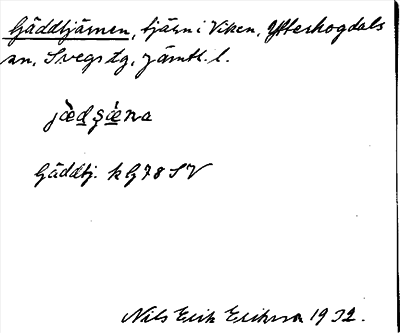 Gäddtjärnen, tjärn i Viken, Ytterhogdals
sn, Svegs tg, Jämtl. l.
jæ̀dʂæ̀na
Gäddtj. k G78 SV
Nils Erik Eriksson 1932.